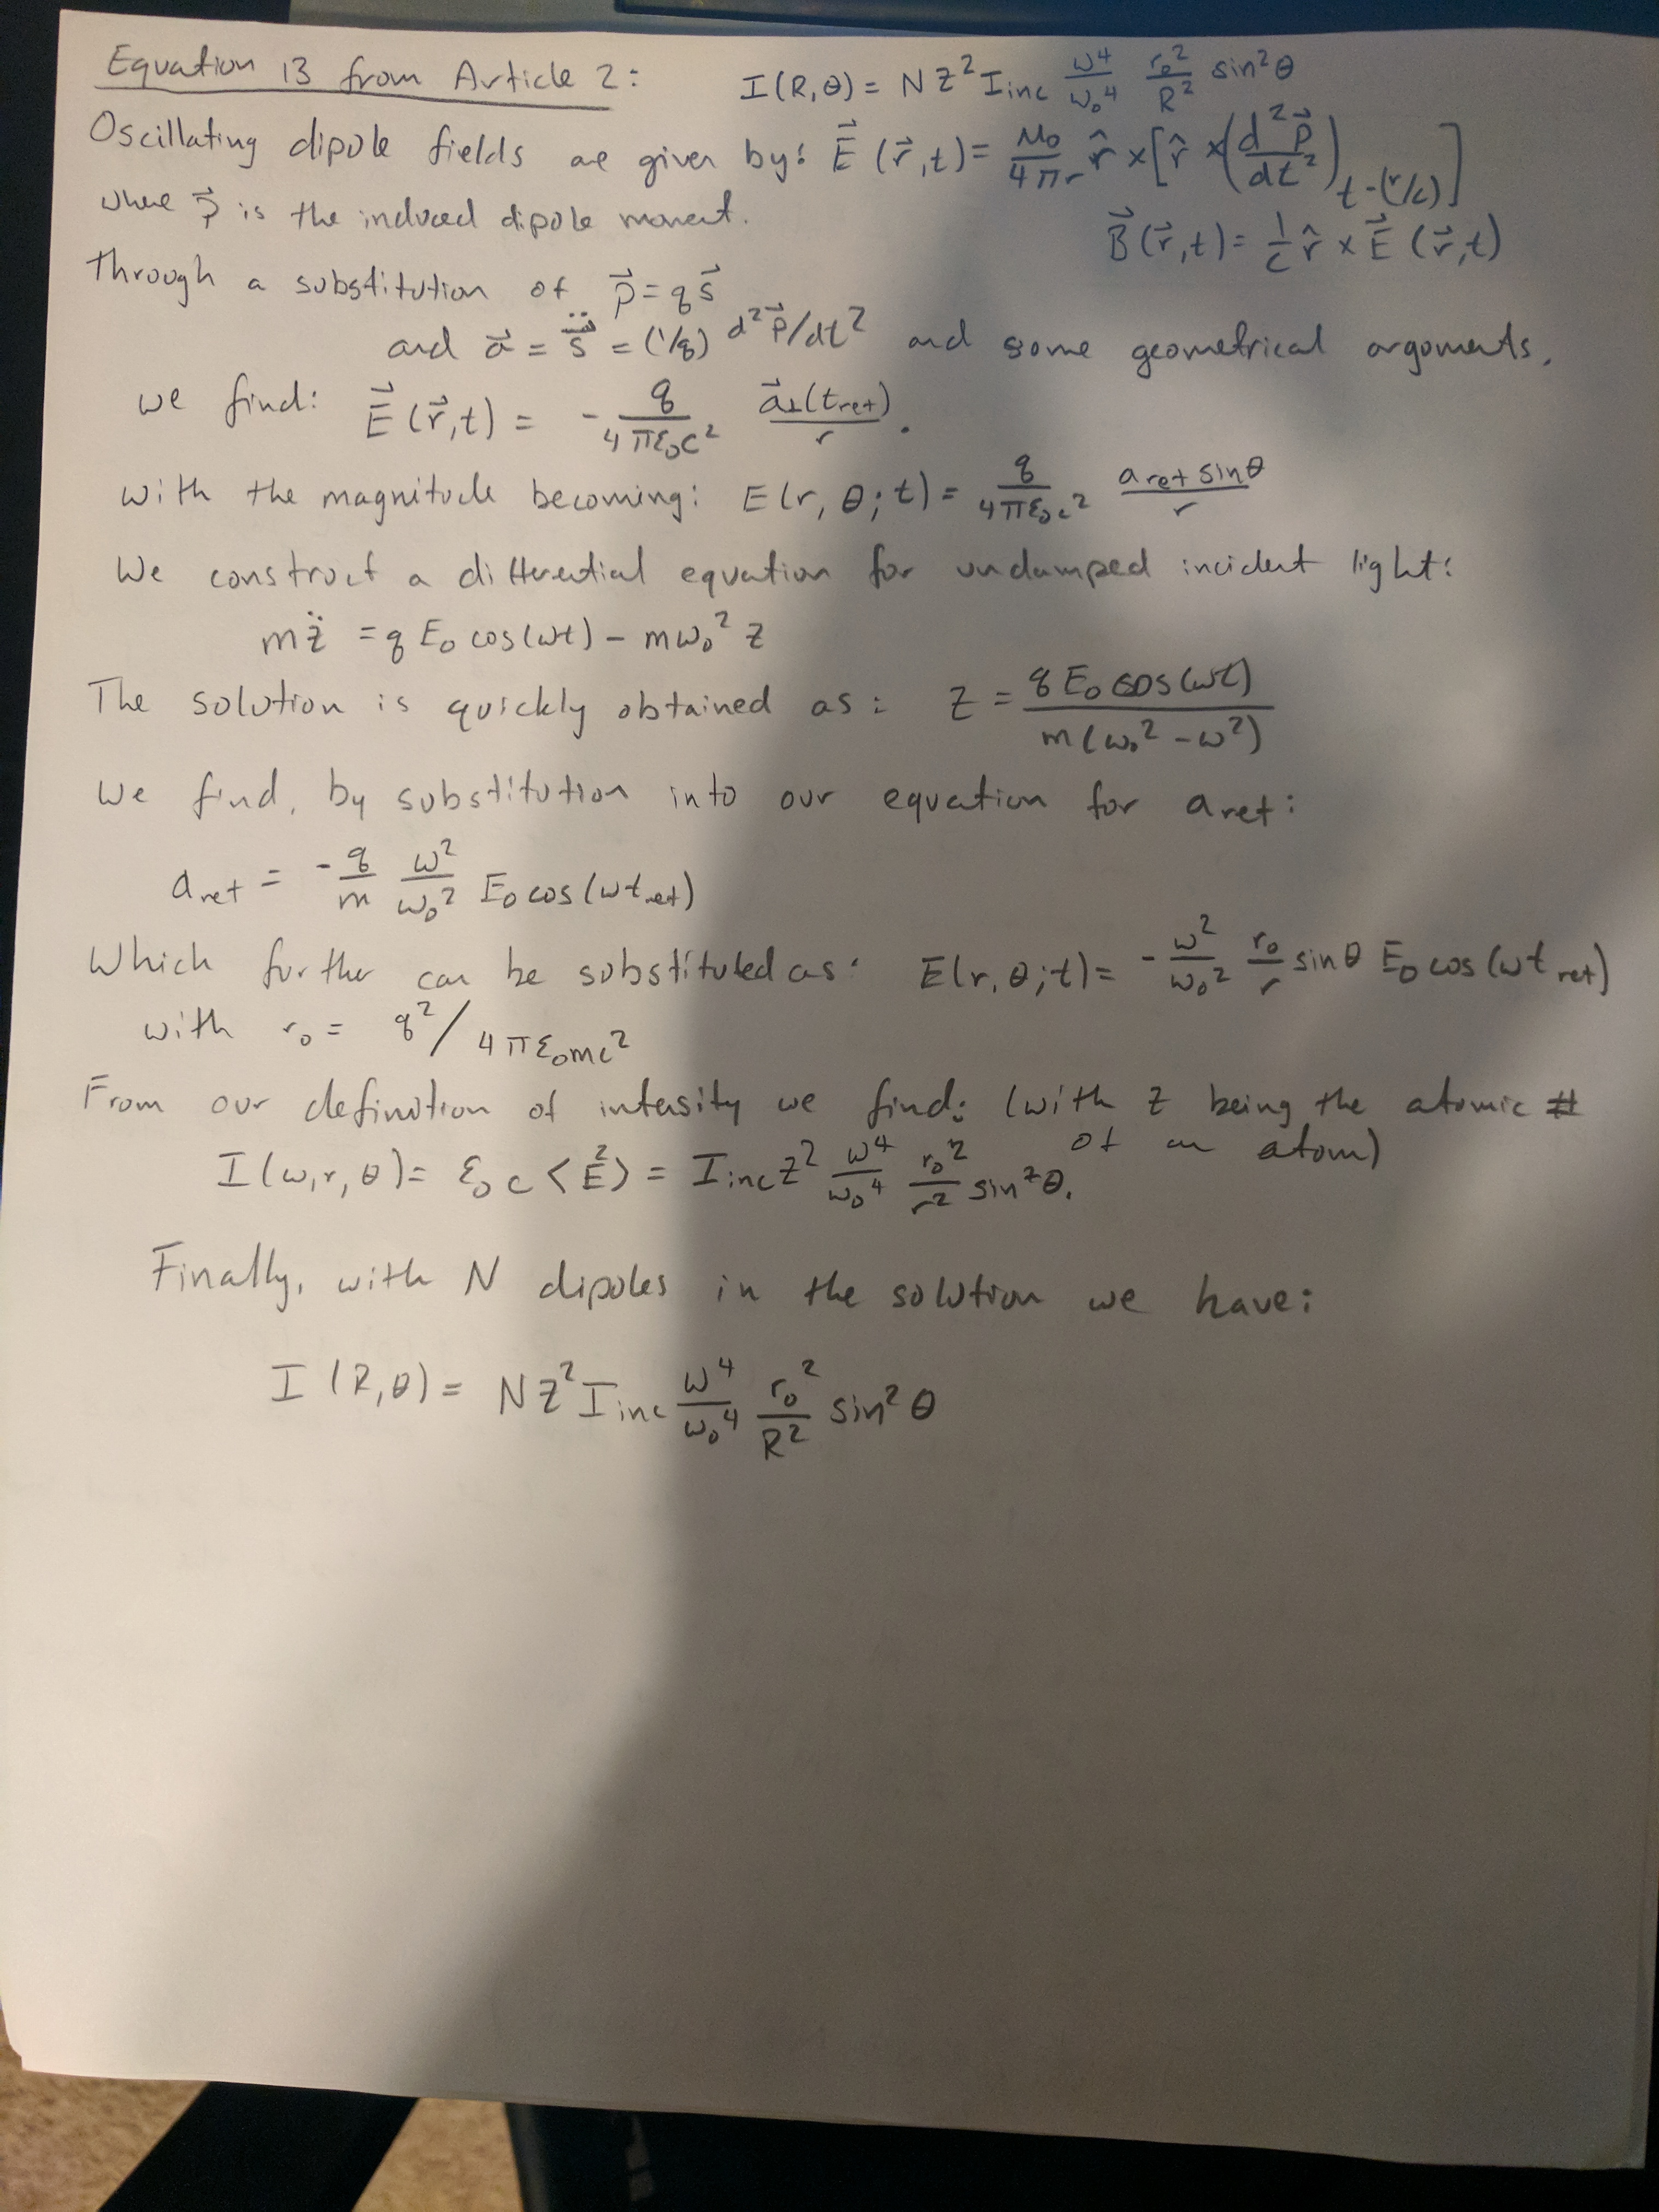 Equation 13 from Article 2: I(R,θ) = N Z² I_inc ω⁴/ω₀⁴ r₀²/R² sin²θ
Oscillating dipole fields are given by: E⃗(r⃗,t) = μ₀/4πr r̂ × [r̂ × (d²p⃗/dt²)_t-(r/c)]
where p⃗ is the induced dipole moment.
B⃗(r⃗,t) = 1/c r̂ × E⃗(r⃗,t)
Through a substitution of p⃗ = q s⃗
and a⃗ = s⃗̈ = (1/q) d²p⃗/dt² and some geometrical arguments,
we find: E⃗(r⃗,t) = - q/4πε₀c² a⃗⊥(t_ret)/r.
with the magnitude becoming: E(r, θ; t) = q/4πε₀c² a_ret sinθ/r
We construct a differential equation for undamped incident light:
m z̈ = q E₀ cos(ωt) - mω₀² z
The solution is quickly obtained as: z = q E₀ cos(ωt)/m(ω₀² - ω²)
We find, by substitution into our equation for a_ret:
a_ret = -q/m ω²/ω₀² E₀ cos(ωt_ret)
Which further can be substituted as: E(r,θ;t) = - ω²/ω₀² r₀/r sinθ E₀ cos(ωt_ret)
with r₀ = q²/4πε₀mc²
From our definition of intensity we find: (with Z being the atomic #
of an atom)
I(ω,r,θ) = ε₀ c <E²> = I_inc Z² ω⁴/ω₀⁴ r₀²/r² sin²θ.
Finally, with N dipoles in the solution we have:
I(R,θ) = N Z² I_inc ω⁴/ω₀⁴ r₀²/R² sin²θ